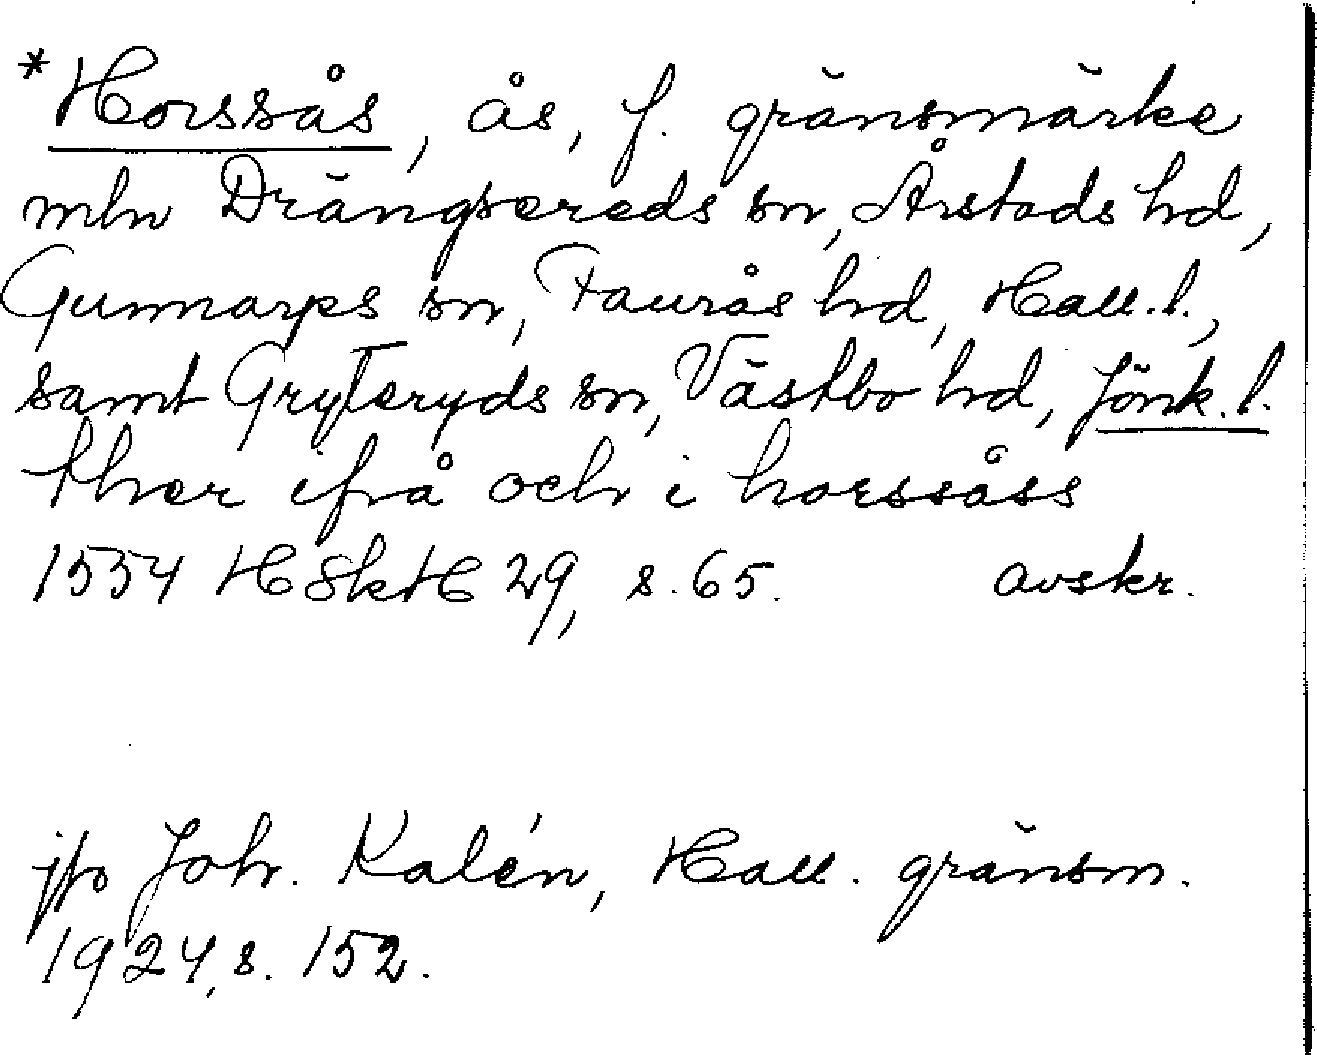 *Horssås, ås, f. gränsmärke
mln Drängsereds sn, Årstads hd,
Gunnarps sn, Faurås hd, Hall. l.,
samt Gryteryds sn, Västbo hd, Jönk. l.
ther ifrå och i horssåss
1554 HSkH 29, s. 65. avskr.
jfr Joh. Kalén, Hall. gränsm.
1924, s. 152.